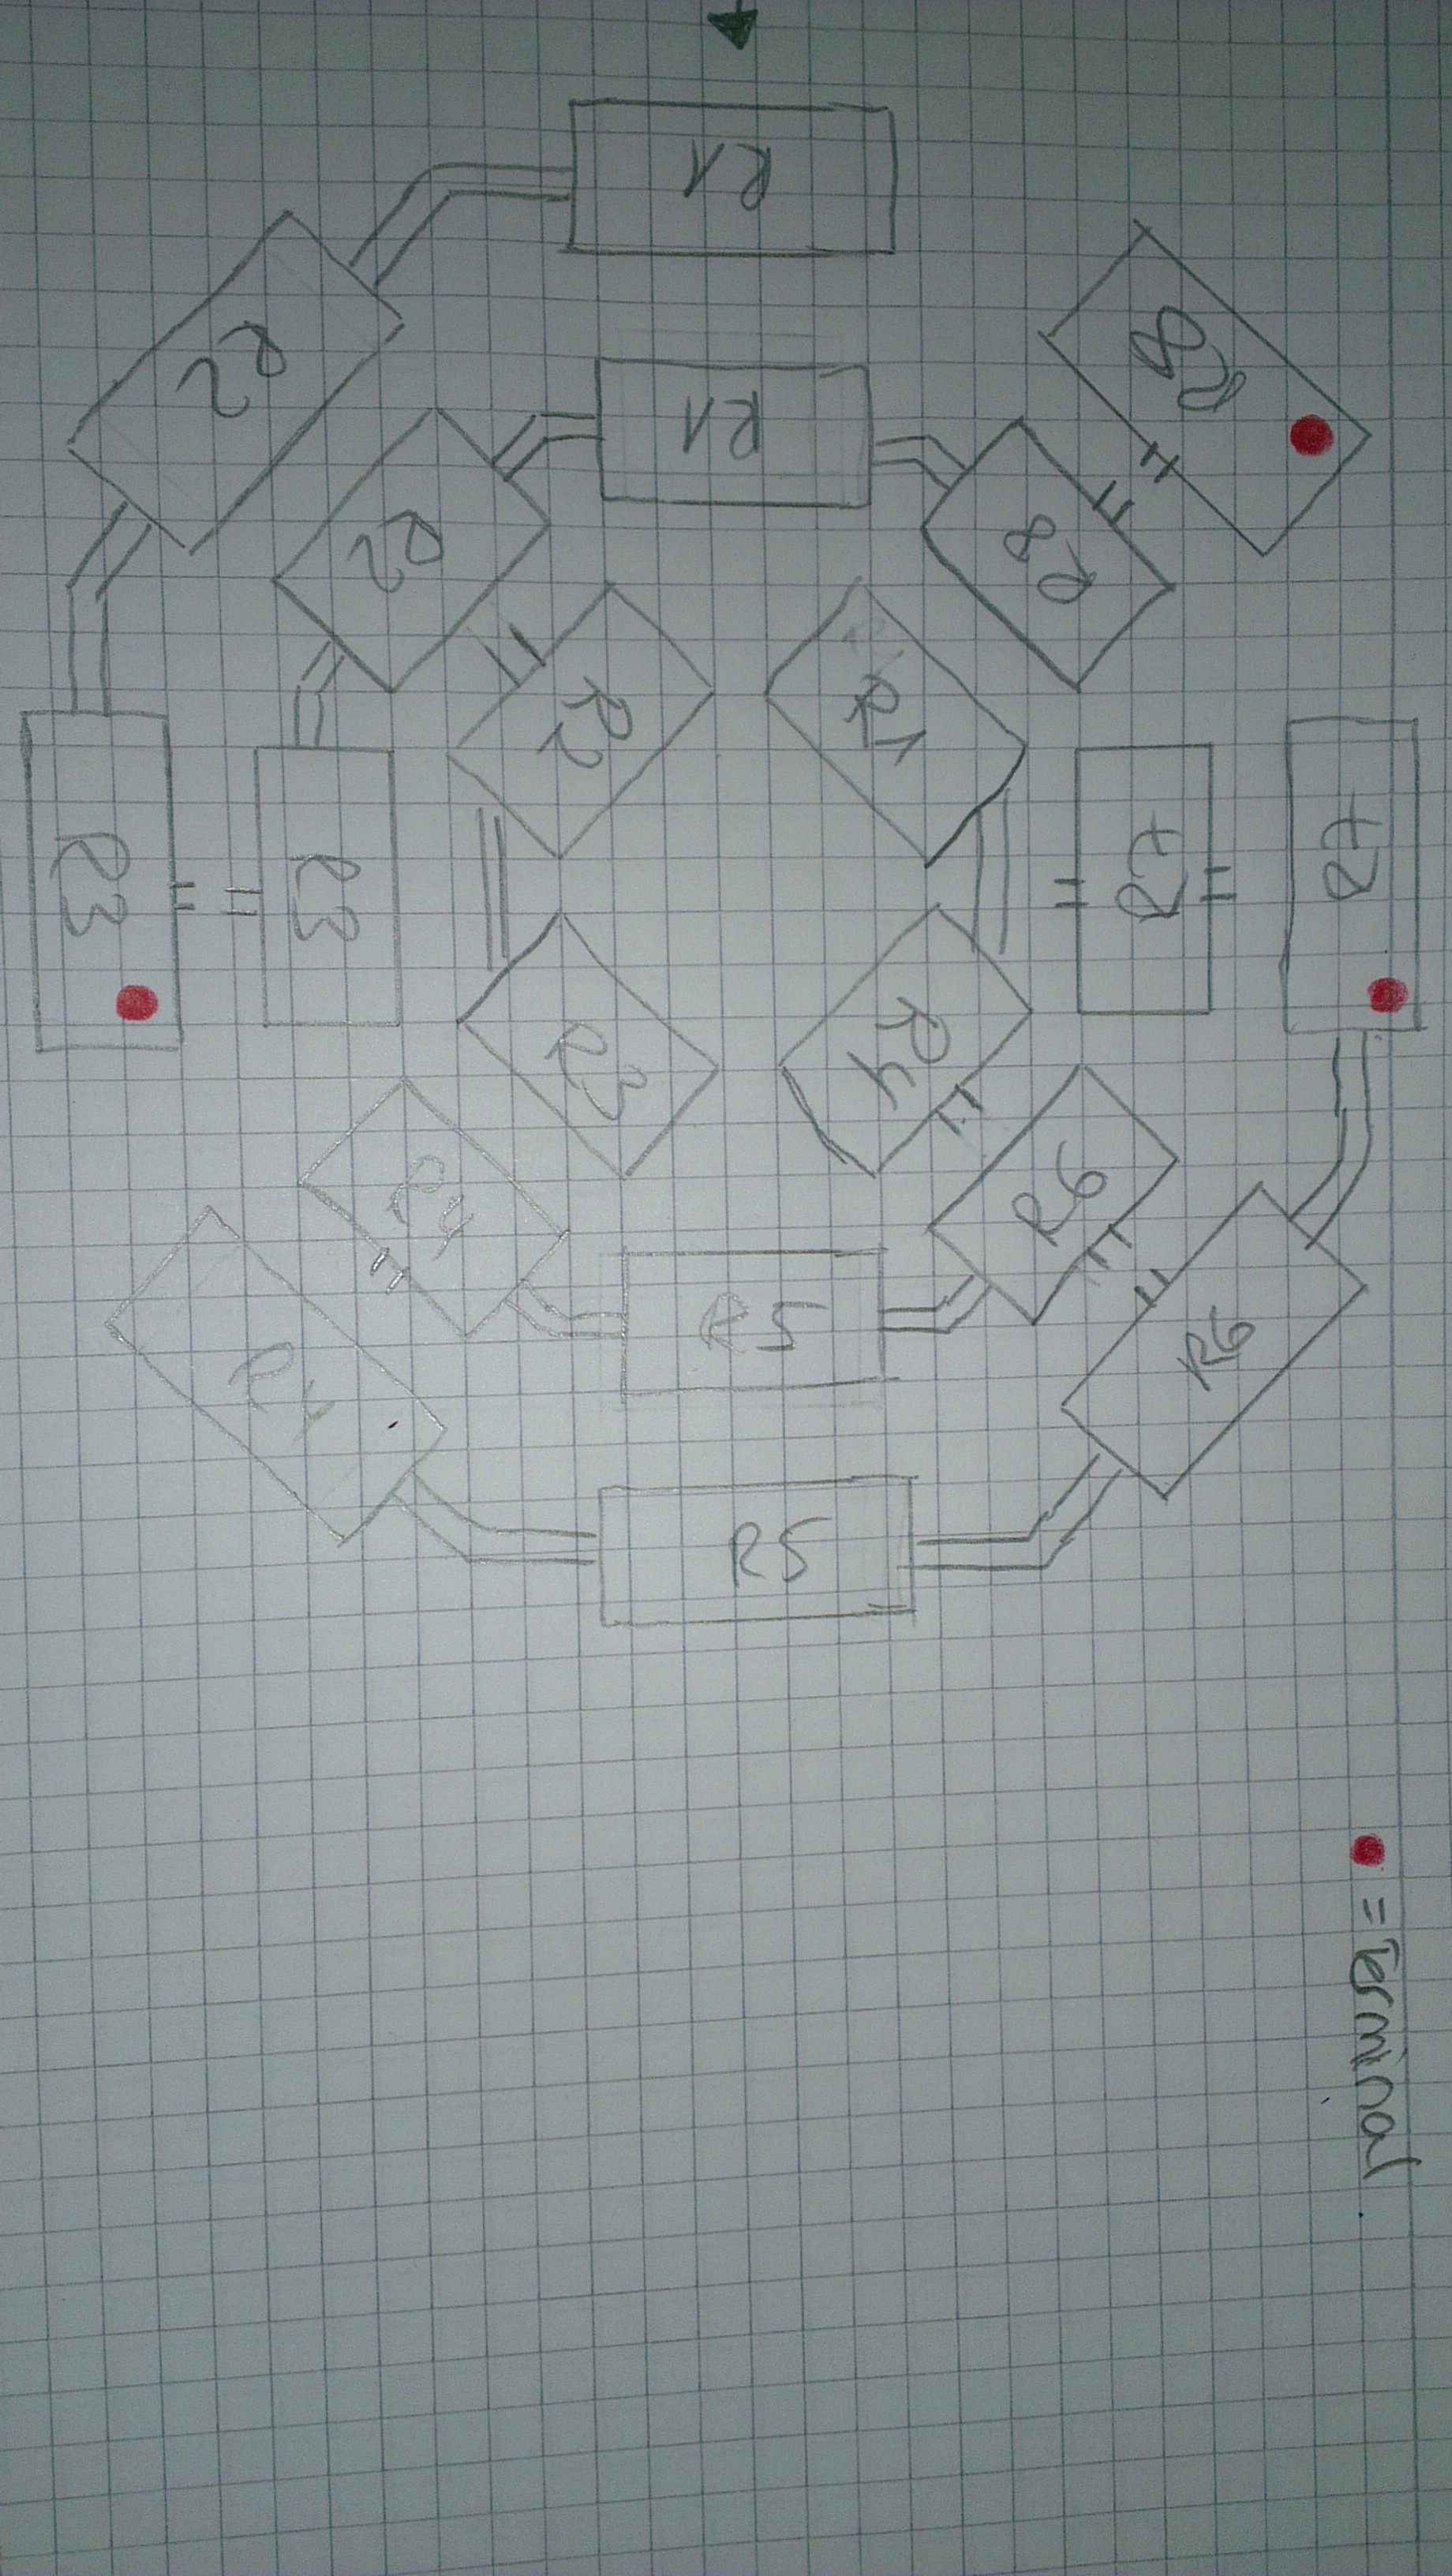 R1
R2
R8
R1
R2
R8
R2
R1
R3
R3
R7
R7
R3
R4
R4
R6
R5
R6
R5
= Terminal